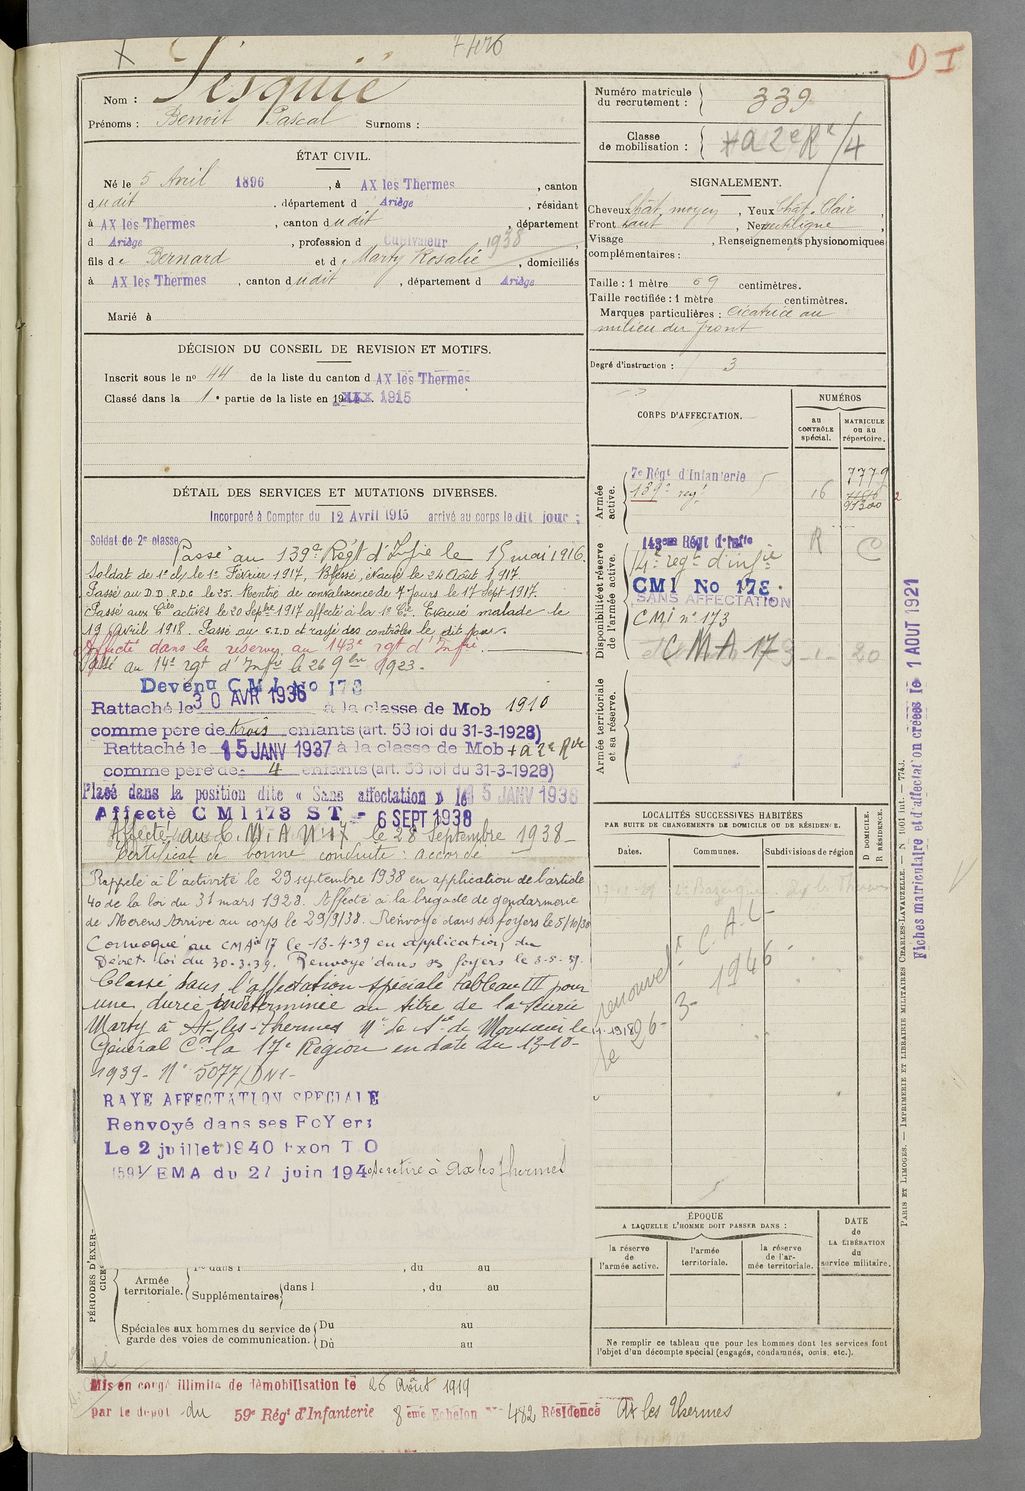 7426
D I
Nom : Pesquié
Prénoms : Benoit Pascal Surnoms :
ÉTAT CIVIL.
Né le 5 Avril 1896, à AX les Thermes, canton
dudit, département d Ariège, résidant
à AX les Thermes, canton dudit, département
d Ariège, profession d Cultivateur 1938
fils de Bernard et de Marty Rosalie, domiciliés
à AX les Thermes, canton dudit, département d Ariège
Marié à
DÉCISION DU CONSEIL DE REVISION ET MOTIFS.
Inscrit sous le no 44 de la liste du canton d AX les Thermes
Classé dans la 1e partie de la liste en 19XXX. 1915
DÉTAIL DES SERVICES ET MUTATIONS DIVERSES.
Incorporé à Compter du 12 Avril 1915 arrivé au corps le dit jour ;
Soldat de 2e classe
Passé au 139e Régt d'Infie le 15 mai 1916.
Soldat de 1e cl, le 1e Février 1917, Blessé, évacué le 24 Août 1917.
Passé au D.D.R.D.C le 25. Rentré de convalescence de 7 Jours le 17 Sept 1917.
Passé aux Cies actives le 20 Septbre 1917 affecté à la 1e Cie. Evacué malade le
19 avril 1918. Passé au C.I.D et rayé des contrôles le dit jour.
Affecté dans la réserve au 143e rgt d'Infie.
Passé au 14e rgt d'Infie le 26 9bre 1923-
Devenu C M I No 173
Rattaché le 30 AVR 1936 à la classe de Mob 1910
comme père de trois enfants (art. 53 loi du 31-3-1928)
Rattaché le 15 JANV 1937 à la classe de Mob + a 2e Rve
comme père de 4 enfants (art. 53 loi du 31-3-1928)
Placé dans la position dite « Sans affectation » le 15 JANV 1938
Affecté C M I 173 S T - 6 SEPT 1938
Affecté au C.M.A N°17 le 28 Septembre 1938-
Certificat de bonne conduite : accordé
Rappelé à l'activité le 29 septembre 1938 en application de l'article
40 de la loi du 31 mars 1928. Affecté à la brigade de gendarmerie
de Merens Arrivé au corps le 29/9/38. Renvoyé dans ses foyers le 5/10/38
Convoqué au CMA 17 le 13-4-39 en application du
Décret-loi du 30-3-39. Renvoyé dans ses foyers le
Classé dans l'affectation spéciale tableau III pour
une durée indéterminée au titre de la Scierie
Marty à Ax-les-thermes No de de Monsieur le
Général Ct la 17e Région en date du 13-10-
1939- N° 5077/DN1-
RAYE AFFECTATION SPECIALE
Renvoyé dans ses FoYers
Le 2 juillet 1940 Exon T O
1591/EMA du 27 juin 1940 se retire à Ax les thermes
PÉRIODES D'EXERCICES
Armée territoriale.
1re dans l , du au
Supplémentaires dans l , du au
Spéciales aux hommes du service de garde des voies de communication.
Du au
Du au
Mis en congé illimité de démobilisation le 26 Août 1919
par le dépot du 59e Régt d'Infanterie 8 ème Echelon No 482 Résidence Ax les Thermes
Numéro matricule du recrutement : 339
Classe de mobilisation : + a 2e Re/4
SIGNALEMENT.
Cheveux Chât. moyen, Yeux Chât. Clair,
Front haut, Nez rectiligne
Visage , Renseignements physionomiques
complémentaires :
Taille : 1 mètre 69 centimètres.
Taille rectifiée : 1 mètre centimètres.
Marques particulières : cicatrice au
milieu du front
Degré d'instruction : 3
CORPS D'AFFECTATION.
NUMÉROS
au CONTRÔLE spécial.
MATRICULE ou au répertoire.
Armée active.
7e Régt d'Infanterie 7779
139e regt 16
Disponibilité et réserve de l'armée active.
143ème Régt d'Infie R
14e regt d'infie
CMI No 173
SANS AFFECTATION
CMI n° 173
CMA 17 3-1-20
Armée territoriale et sa réserve.
LOCALITÉS SUCCESSIVES HABITÉES
PAR SUITE DE CHANGEMENTS DE DOMICILE OU DE RÉSIDENCE.
Dates.
Communes.
Subdivisions de région
D DOMICILE.
R RÉSIDENCE.
renouvelt C.A.L-
le 26-3-1946
ÉPOQUE
A LAQUELLE L'HOMME DOIT PASSER DANS :
la réserve de l'armée active.
l'armée territoriale.
la réserve de l'armée territoriale.
DATE de LA LIBÉRATION du service militaire.
Ne remplir ce tableau que pour les hommes dont les services font
l'objet d'un décompte spécial (engagés, condamnés, omis, etc.).
PARIS ET LIMOGES. — IMPRIMERIE ET LIBRAIRIE MILITAIRES CHARLES-LAVAUZELLE. — N° 1001 int. — 7743.
Fiches matriculaire et d'affectation créées le 1 AOUT 1921